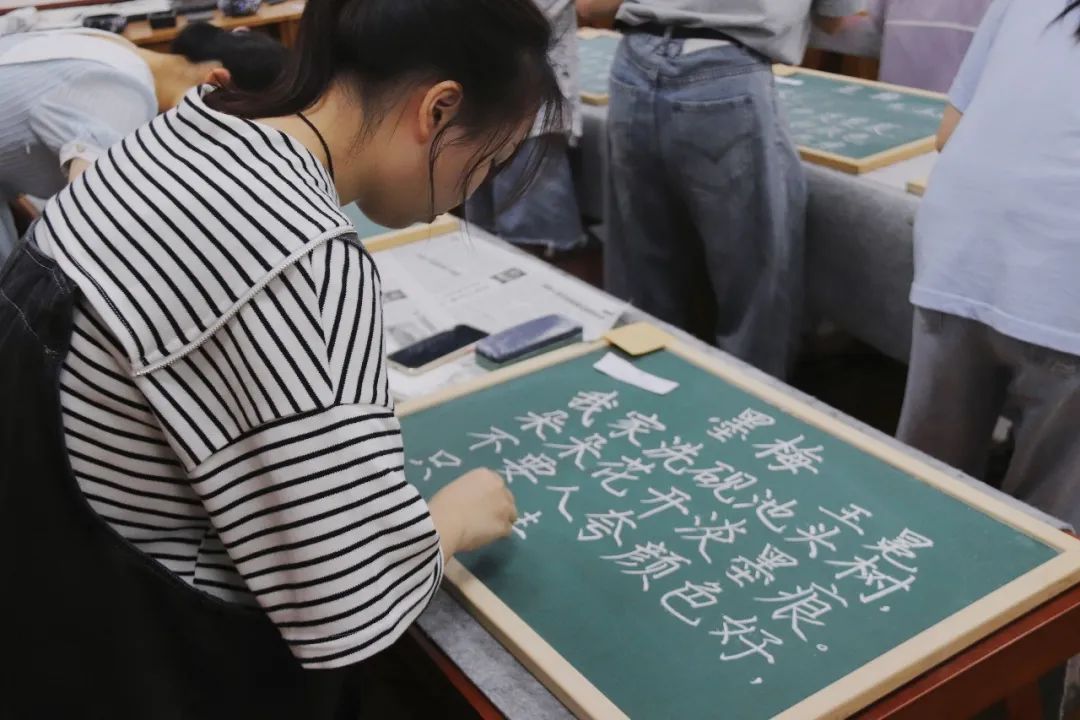 墨梅
王冕
我家洗砚池头树,
朵朵花开淡墨痕。
不要人夸颜色好,
只